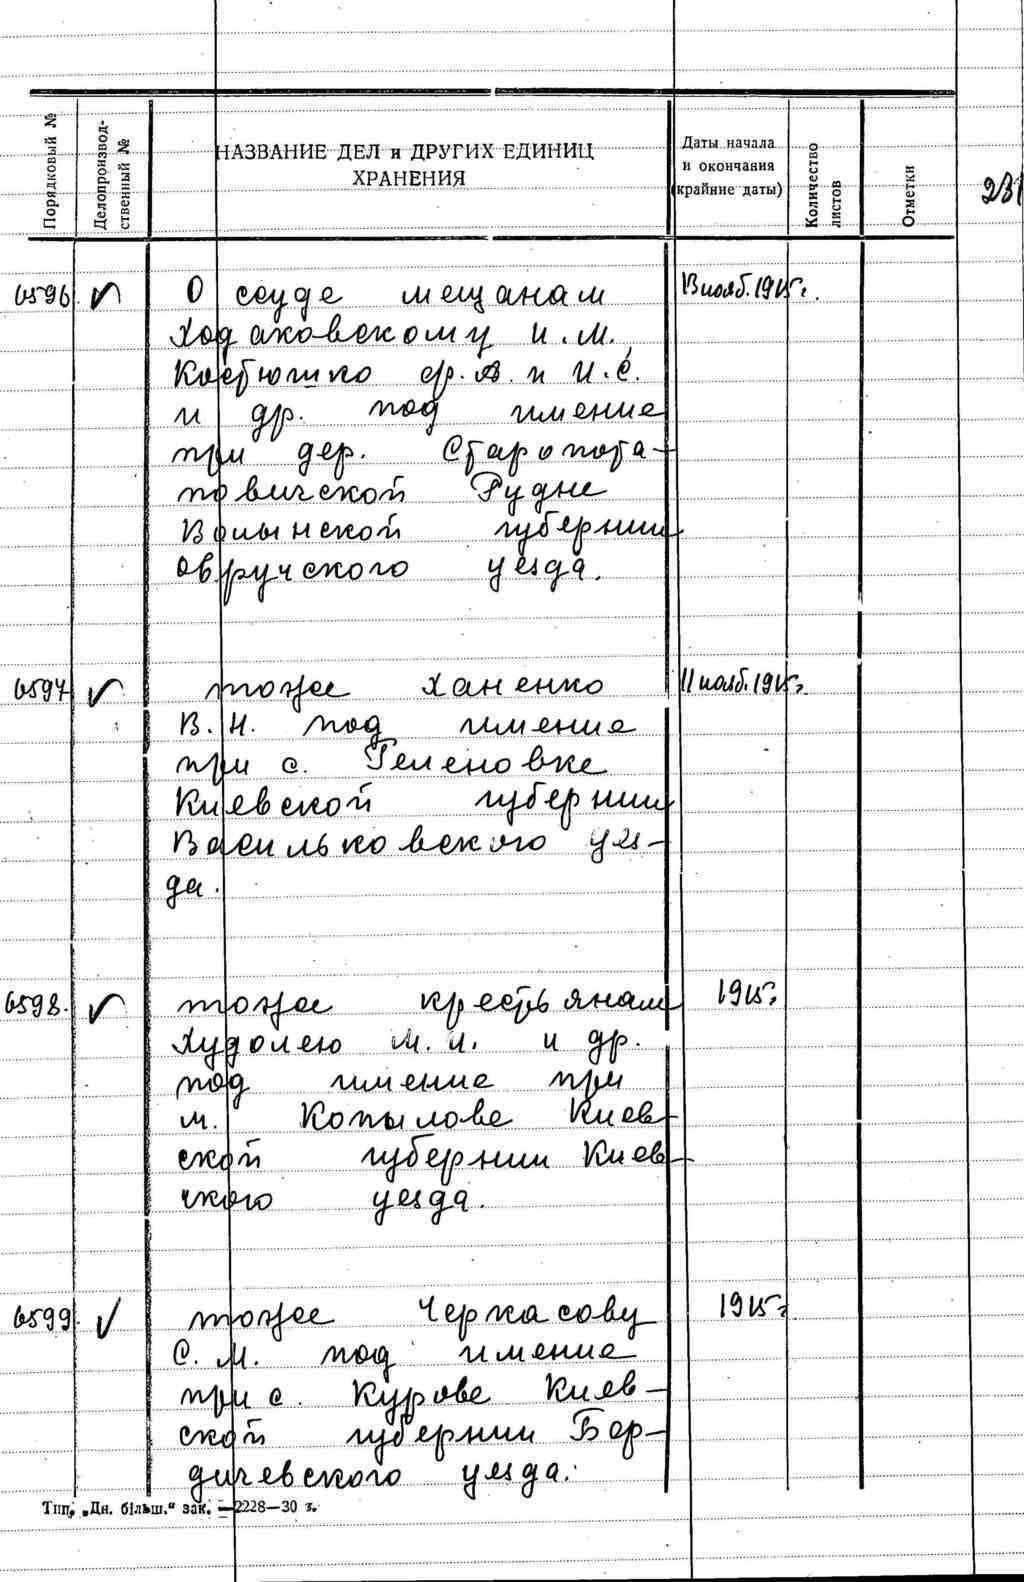 Порядковый №
Делопроизвод-
ственный №
НАЗВАНИЕ ДЕЛ и ДРУГИХ ЕДИНИЦ
ХРАНЕНИЯ
Даты начала
и окончания
(крайние даты)
Количество
листов
Отметки
231
6596 О ссуде мещанам 13 нояб. 1915 г.
Ходаковскому И. М.
Костюшко Ф. А. и И. С.
и др. под имение
при дер. Старопота-
повичской Рудне
Волынской губернии
Овручского уезда.
6597 тоже Ханенко 11 нояб. 1915 г.
В. Н. под имение
при с. Геленовке
Киевской губернии
Васильковского уез-
да.
6598. тоже крестьянам 1915 г.
Худолею М. И. и др.
под имение при
м. Копылове Киев-
ской губернии Киев-
ского уезда.
6599. тоже Черкасову 1915 г.
С. М. под имение
при с. Курове Киев-
ской губернии Бер-
дичевского уезда.
Тип. „Дн. більш." зак. —2228—30 т.